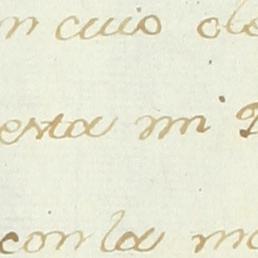 n cuio de
esta mi
con la m